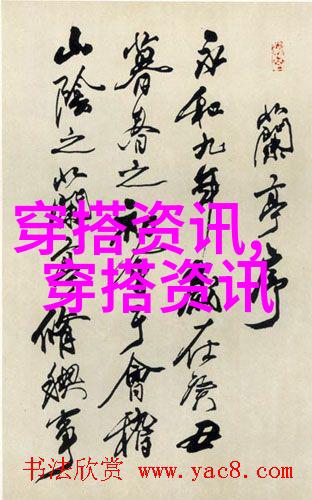 蘭亭序
永和九年歲在癸丑
暮春之初會于會稽
山陰之蘭亭脩禊事
穿搭资讯,
穿搭资讯
书法欣赏 www.yac8.com